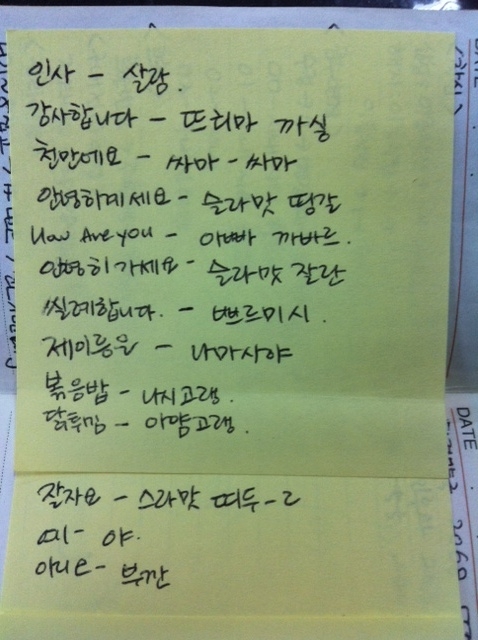 인사 - 살람.
감사합니다 - 뜨리마 까실
천만에요 - 싸마-싸마
안녕히계세요 - 슬라맛 띵갈
How Are you - 아빠 까바르.
안녕히가세요 - 슬라맛 잘란
씰례합니다. - 쁘르미시.
제이름은 - 나마사야
볶음밥 - 나시고랭.
닭튀김 - 아얌고랭.
잘자요 - 스라맛 띠두-ㄹ
네 - 야.
아니요 - 부깐
DATE
DATE